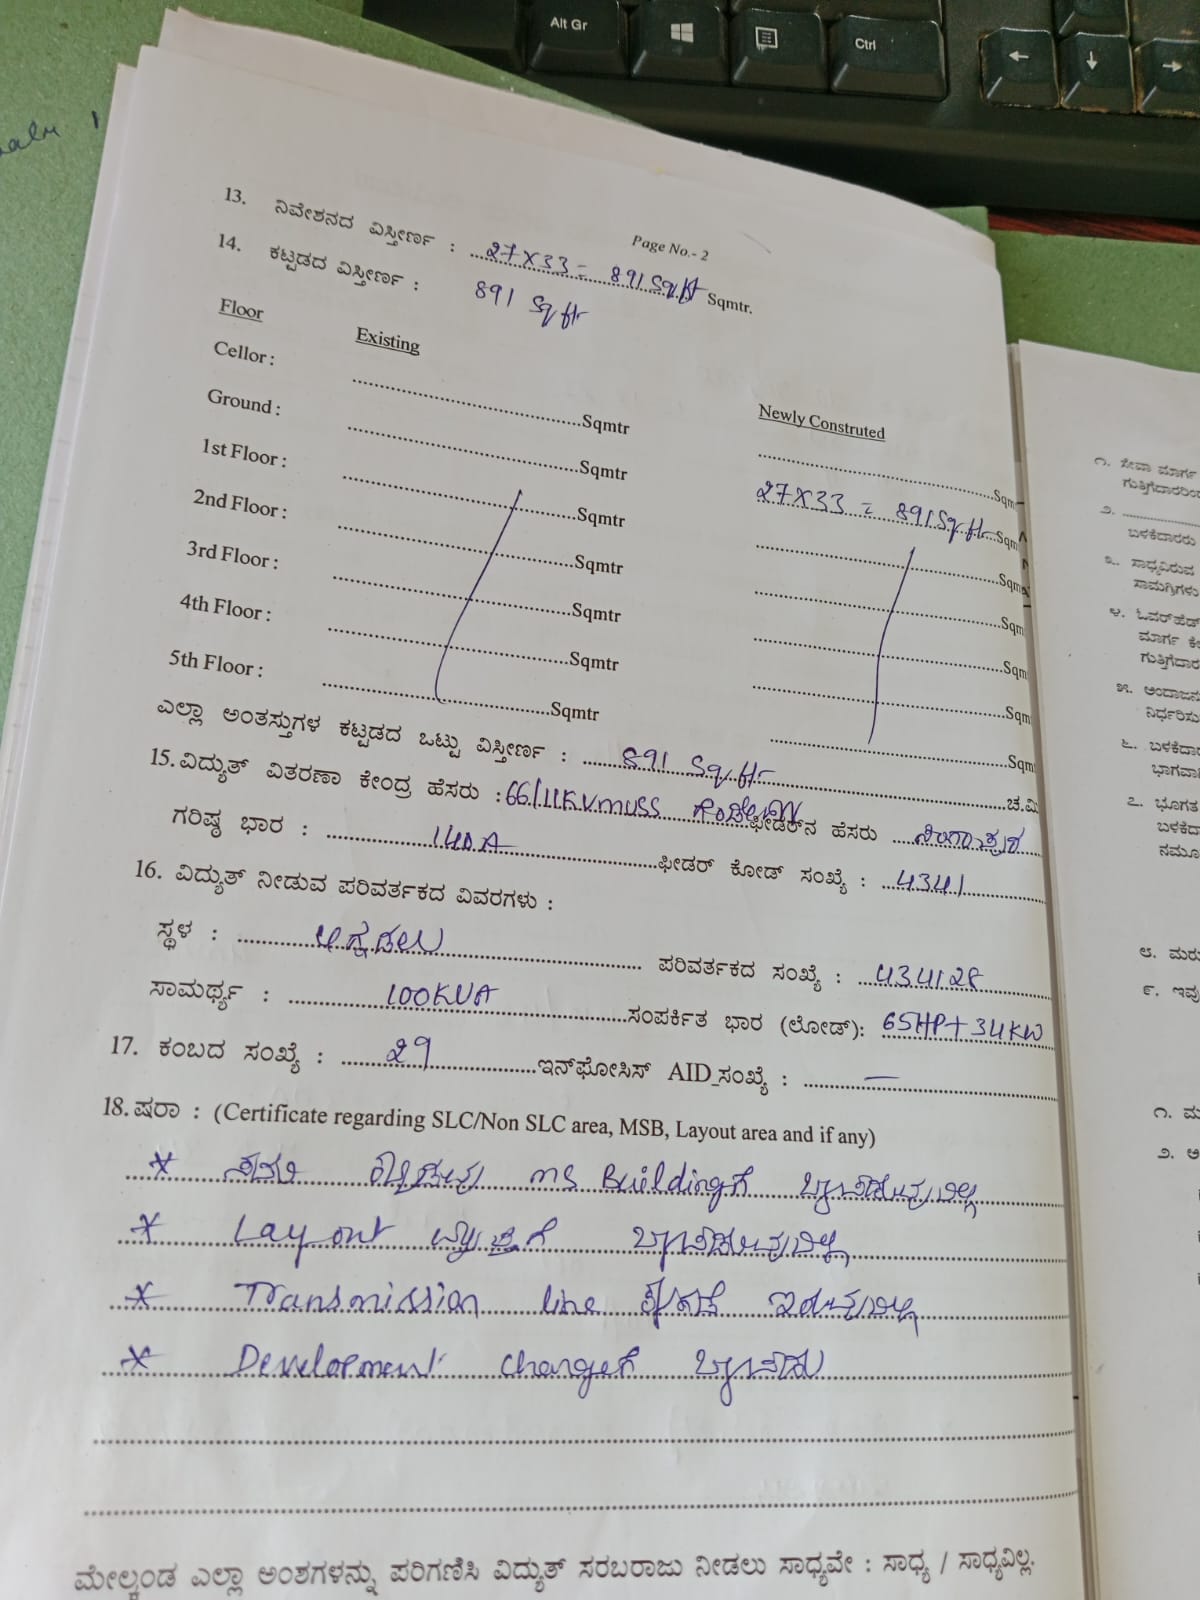 Alt Gr
Ctrl
Page No.- 2
13. ನಿವೇಶನದ ವಿಸ್ತೀರ್ಣ : 27X33 = 891 Sq ft Sqmtr.
14. ಕಟ್ಟಡದ ವಿಸ್ತೀರ್ಣ : 891 Sq ft
Floor Existing Newly Construted
Cellor : Sqmtr Sqm
Ground : Sqmtr 27X33 = 891 Sq ft Sqm
1st Floor : Sqmtr Sqm
2nd Floor : Sqmtr Sqm
3rd Floor : Sqmtr Sqm
4th Floor : Sqmtr Sqm
5th Floor : Sqmtr Sqm
ಎಲ್ಲಾ ಅಂತಸ್ತುಗಳ ಕಟ್ಟಡದ ಒಟ್ಟು ವಿಸ್ತೀರ್ಣ : 891 Sq ft ಚ.ಮಿ
15. ವಿದ್ಯುತ್ ವಿತರಣಾ ಕೇಂದ್ರ ಹೆಸರು : 66/11KV MUSS ಫೀಡರ್‌ನ ಹೆಸರು
ಗರಿಷ್ಠ ಭಾರ : 140A ಫೀಡರ್ ಕೋಡ್ ಸಂಖ್ಯೆ : 4341
16. ವಿದ್ಯುತ್ ನೀಡುವ ಪರಿವರ್ತಕದ ವಿವರಗಳು :
ಸ್ಥಳ : ಪರಿವರ್ತಕದ ಸಂಖ್ಯೆ : 434128
ಸಾಮರ್ಥ್ಯ : 100KVA ಸಂಪರ್ಕಿತ ಭಾರ (ಲೋಡ್): 65HP+34KW
17. ಕಂಬದ ಸಂಖ್ಯೆ : 29 ಇನ್‌ಫೋಸಿಸ್ AID_ಸಂಖ್ಯೆ : —
18. ಷರಾ : (Certificate regarding SLC/Non SLC area, MSB, Layout area and if any)
* ಸದರಿ ಕಟ್ಟಡವು MS Buildingಗೆ ಒಳಪಡುವುದಿಲ್ಲ
* Layout ವ್ಯಾಪ್ತಿಗೆ ಒಳಪಡುವುದಿಲ್ಲ
* Transmission line ಕೆಳಗಡೆ ಇರುವುದಿಲ್ಲ
* Development chargeಗೆ
ಮೇಲ್ಕಂಡ ಎಲ್ಲಾ ಅಂಶಗಳನ್ನು ಪರಿಗಣಿಸಿ ವಿದ್ಯುತ್ ಸರಬರಾಜು ನೀಡಲು ಸಾಧ್ಯವೇ : ಸಾಧ್ಯ / ಸಾಧ್ಯವಿಲ್ಲ.
೧. ಸೇವಾ ಮಾರ್ಗ
೨.
ಬಳಕೆದಾರರು
೩. ಸಾಧ್ಯವಿರುವ
ಸಾಮಗ್ರಿಗಳು
೪. ಓವರ್‌ಹೆಡ್
ಮಾರ್ಗ
೫.
೬.
೭. ಭೂಗತ
೮.
೯.
೧.
೨.